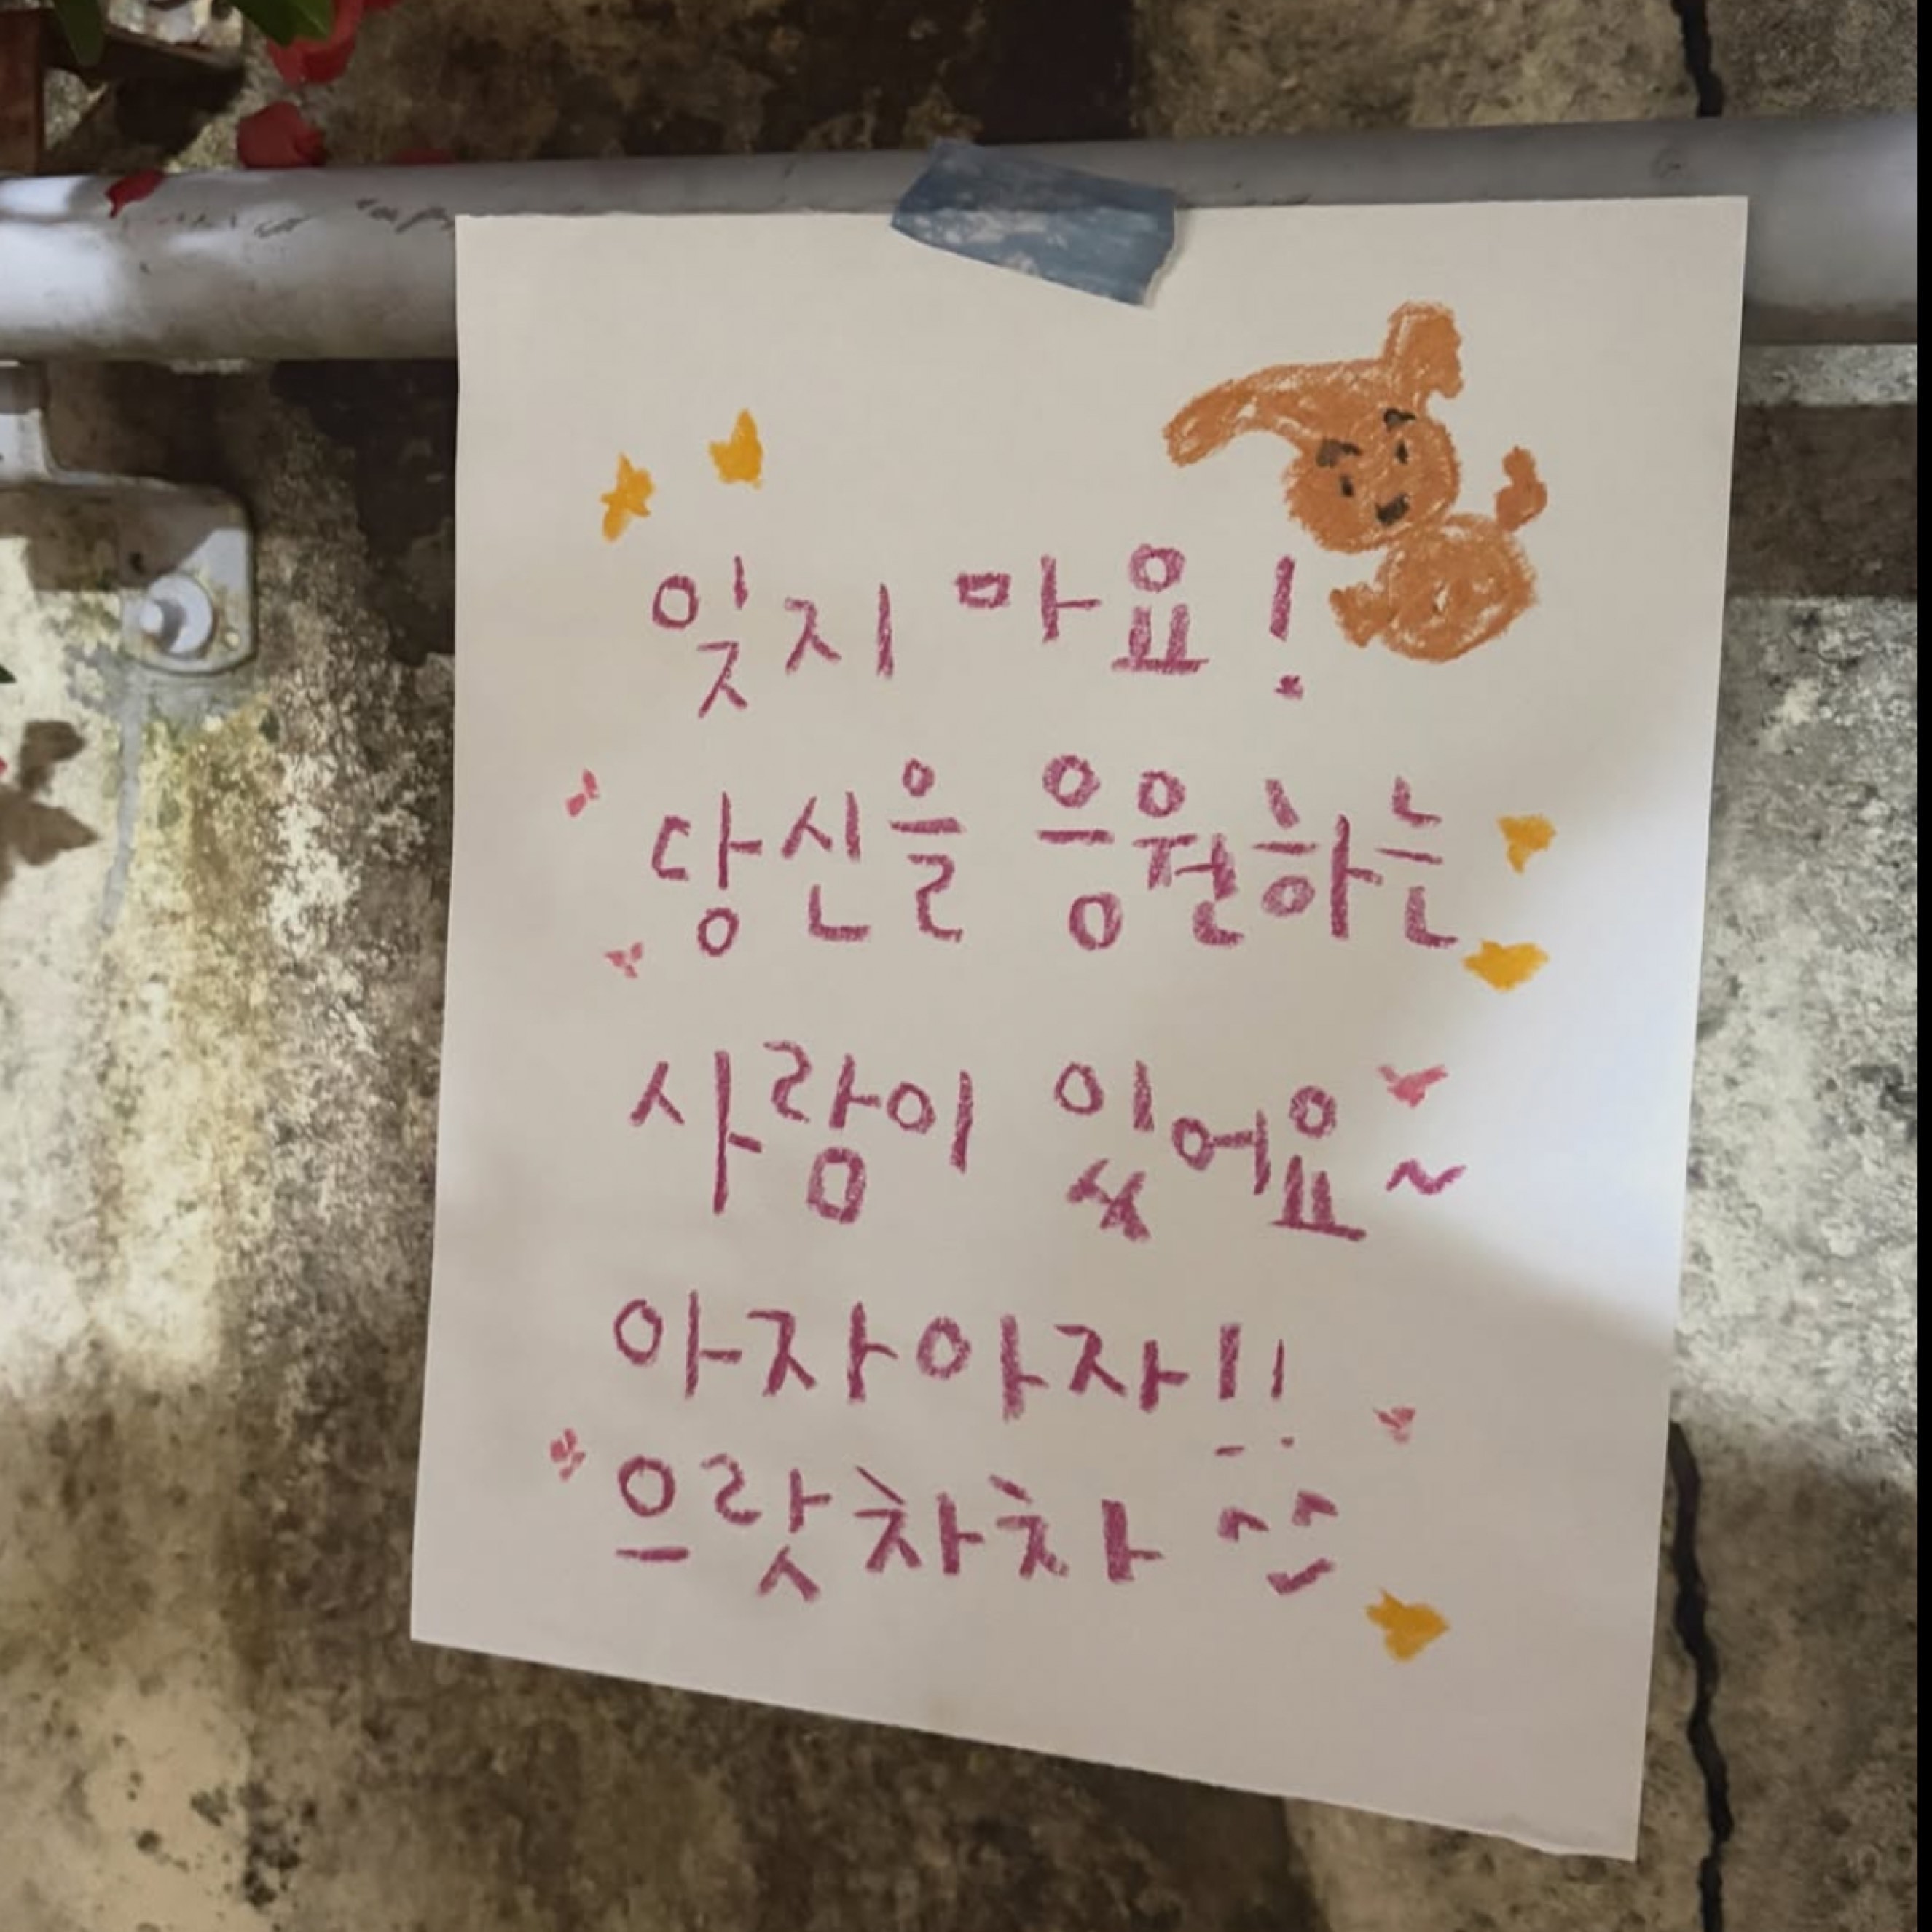 잊지 마요!
당신을 응원하는
사랑이 있어요~
아자아자!!
으랏차차 ^^